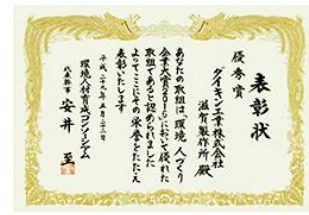 表彰状
優秀賞
ダイキン工業株式会社
滋賀製作所 殿
あなたの取組は「環境 人づくり
企業大賞2016」において優れた
取組であると認められました
よってここにその栄誉をたたえ
表彰いたします
平成二十九年五月二十三日
環境人材育成コンソーシアム
代表幹事 安井 至